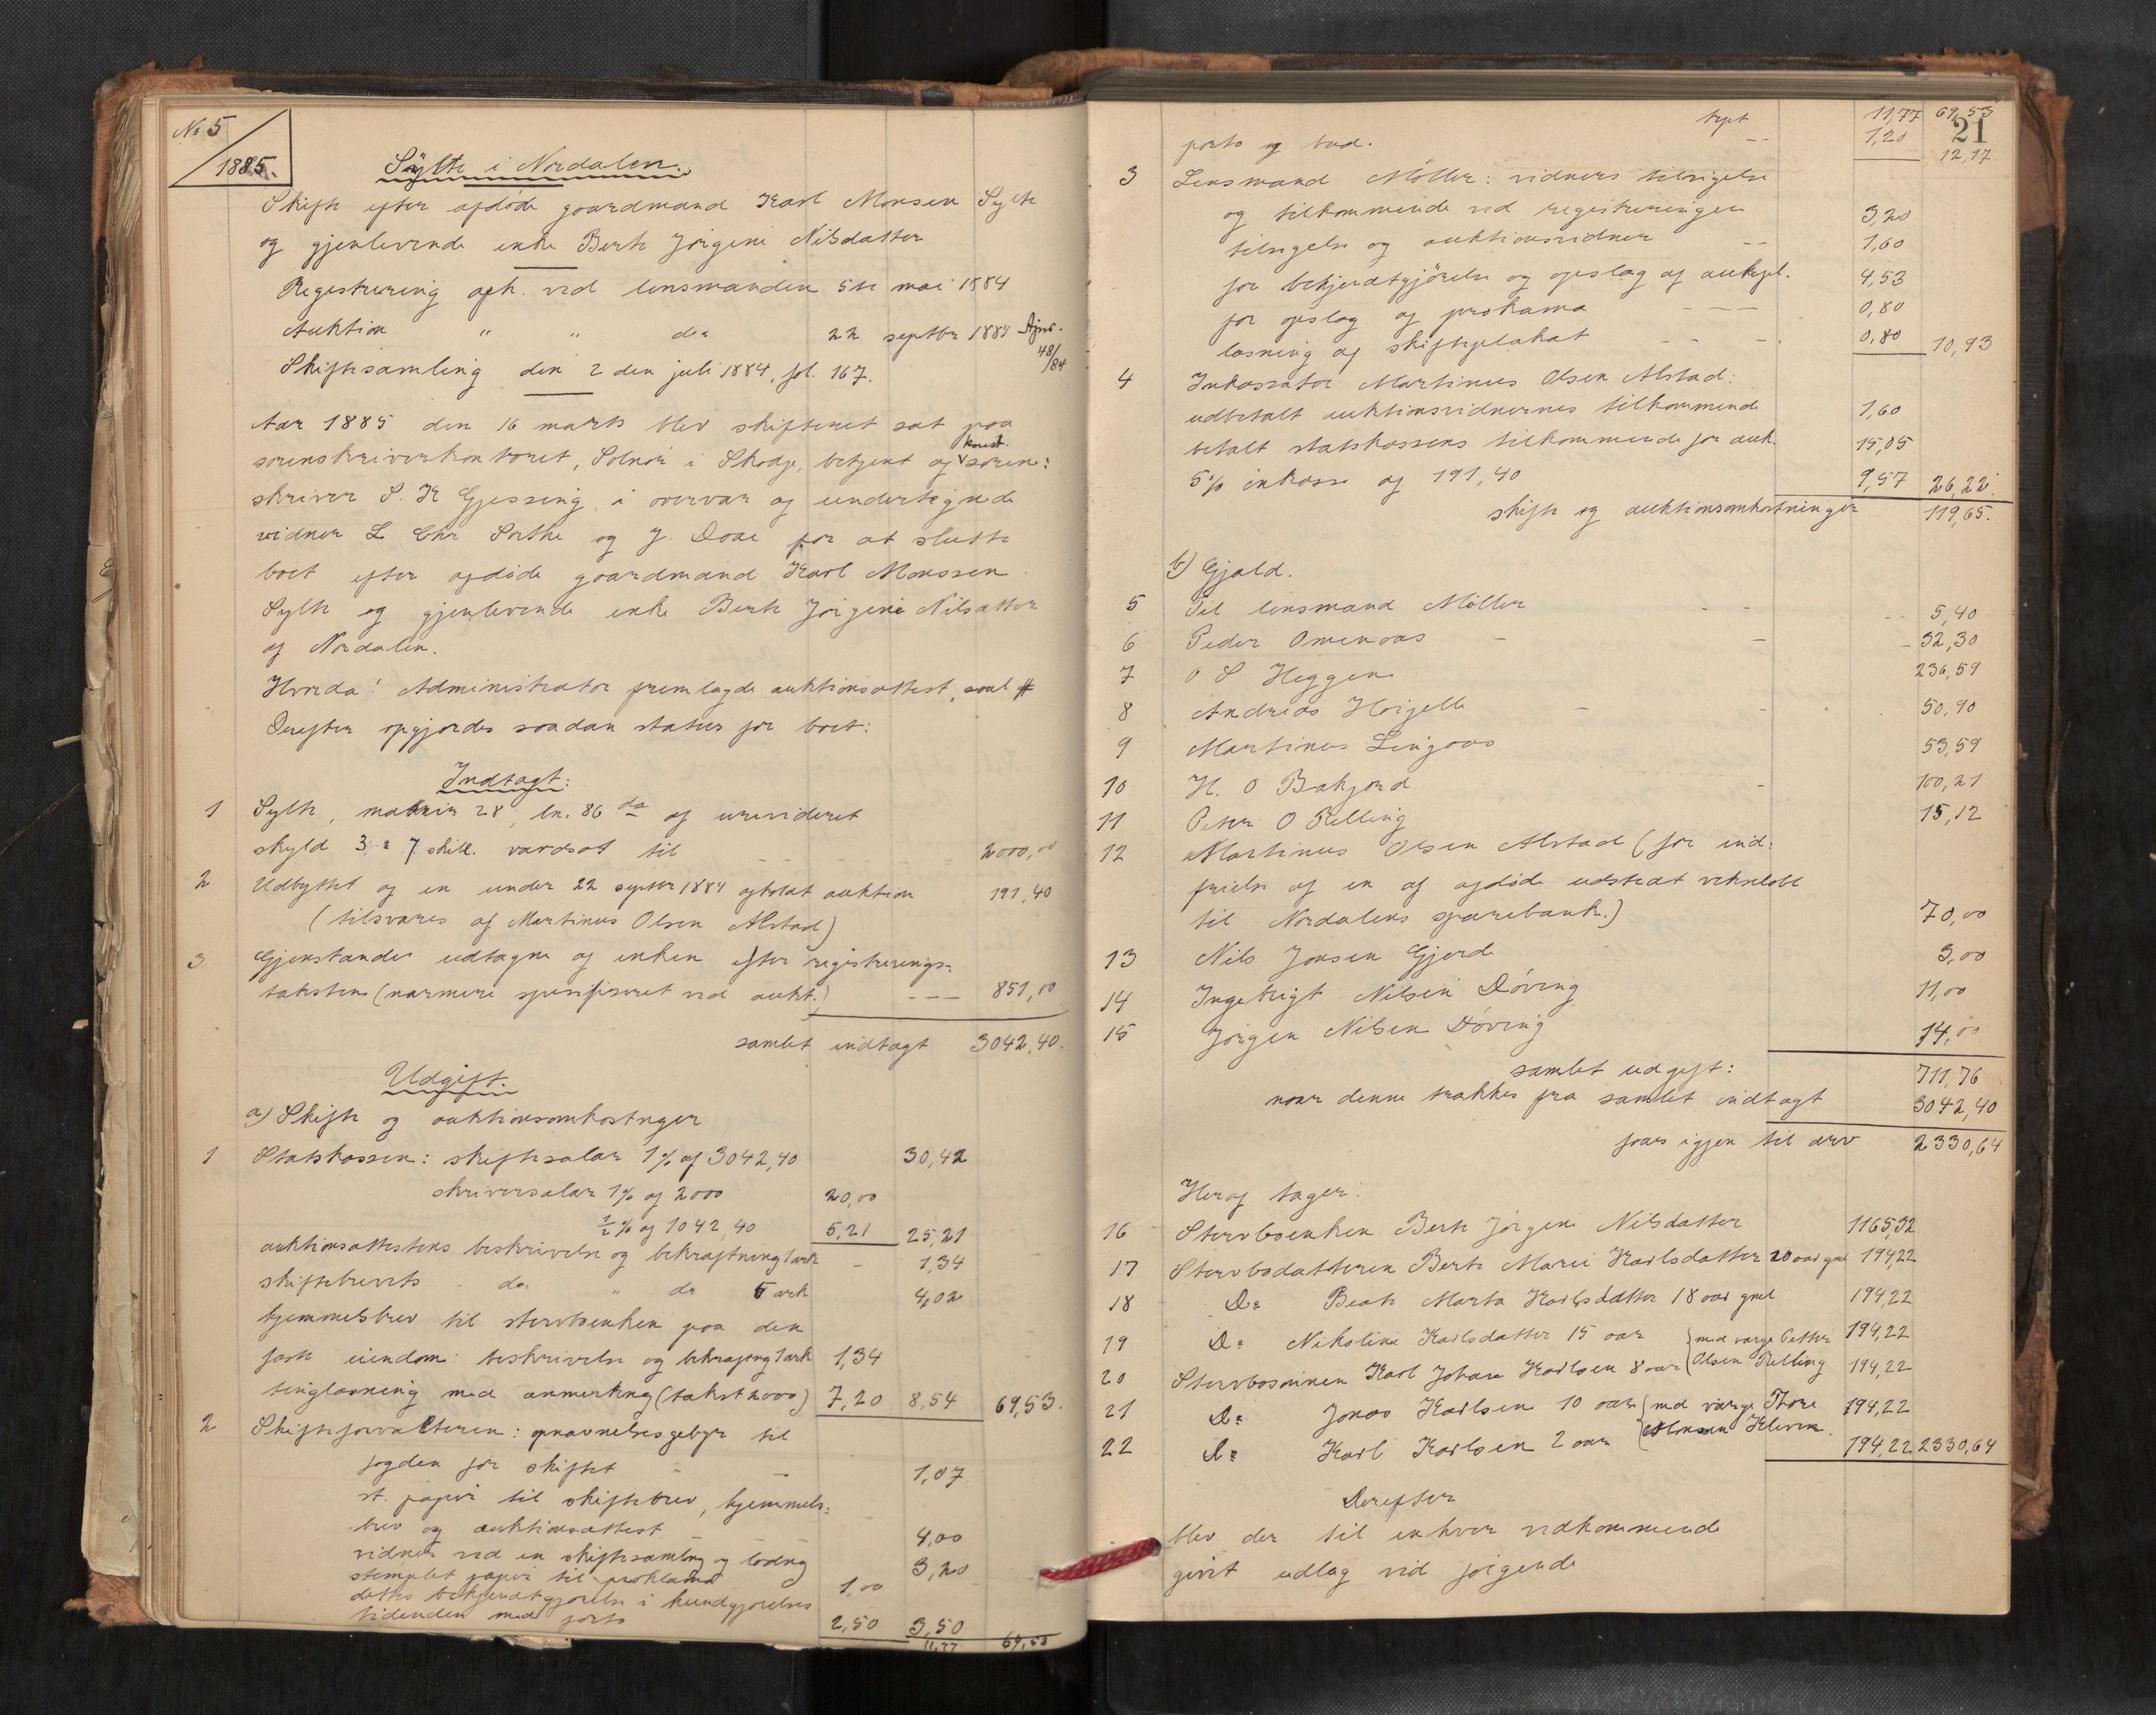 No 5
1885.
Sylte i Nordalen.
Skifte efter afdöde gaardmand Karl Monsen Sylte
og gjenlevende enke Berte Jörgine Nilsdatter
Registrering afh. ved lensmanden 5te mai 1884
Auktion " " do 22 septbr 1884 Ajour.
48/84
Skiftesamling den 2den juli 1884, fol. 167.
Aar 1885 den 16 marts blev skifteret sat paa
sorenskriverkontoret, Solnör i Skodje, betjent af konst. soren:
skriver S. K Gjessing i overvær af undertegnede
vidner L Chr Sorthe og J. Doae for at slutte
boet efter afdöde gaardmand Karl Monssen
Sylte og gjenlevende enke Berte Jörgine Nilsdatter
af Nordalen.
Hvorda! Administrator fremlagde auktionsattest, saal #
Derefter opgjordes saadan status for boet:
Indtægt:
1 Sylte, matrnr 28, ln. 86 da af urevideret
skyld 3 " 7 skill. værdsat til 2000,00
2 Udbyttet af en under 22 septbr 1884 afholdt auktion 191,40
(tilsvares af Martinus Olsen Alstad)
3 Gjenstande udtagne af enken efter registrerings-
taksten (nærmere spesifiseret ved aukt.) --- 851,00
samlet indtægt 3042,40.
Udgift.
a) Skifte og auktionsomkostnger
1 Statskassen: skiftesalær 1% af 3042,40 30,42
skriversalær 1% af 2000 20,00
½% af 1042,40 5,21 25,21
auktionsattestens beskrivelse og bekræftning 1 ark - 1,34
skiftebrevets do " do 5 ark 4,02
hjemmelsbrev til stervboenken paa den
faste eiendom: beskrivelse og bekræftng 1 ark 1,34
tinglæsning med anmerkng (takst 2000) 7,20 8,54 69,53.
2 Skifteforvalteren: opnævnelsesgebyr til
fogden for skiftet - - 1,07
st. papir til skiftebrev, hjemmels-
brev og auktionsattest - - - 4,00
vidner ved en skiftesamlng og lodng 3,20
stemplet papir til proklama 1,00
dettes bekjendtgjörelse i kundgjörelses
tidenden med porto 2,50 3,50
11,77 69,53
21
tept 11,77 69,53
porto og bud. -- 1,20 12,97
3 Lensmand Möller: vidners tilsigelse
og tilkommende ved registreringen 3,20
tilsigelse af auktionsvidner -- 1,60
for bekjendtgjörelse og opslag af aukspl. 4,53
for opslag af proklama --- 0,80
læsning af skifteplakat - - - 0,80 10,93
4 Inkassator Martinus Olsen Alstad:
udbetalt auktionsvidnernes tilkommende 1,60
betalt statskassens tilkommende for auk. 15,05
5% inkasso af 191,40 9,57 26,22
skifte og auktionsomkostninger 119,65.
b) Gjæld.
5 Til lensmand Möller - - -- 5,40
6 Peder Omenaas - - - 32,30
7 O S Heggen 236,59
8 Andreas Hoijelle - - 50,90
9 Martinus Lingaas 53,59
10 H. O Bakjord - 100,21
11 Peter O Relling 15,12
12 Martinus Olsen Alstad (for ind:
frielse af en af afdöde udstedt vekselobl
til Nordalens sparebank.) 70,00
13 Nils Jonsen Gjerde 3,00
14 Ingebrigt Nilsen Döving 11,00
15 Jörgen Nilsen Döving 14,00
samlet udgift: 711,76
naar denne trækkes fra samlet indtægt 3042,40
faaes igjen til arv 2330,64
Heraf tager:
16 Stervboenken Berte Jörgine Nilsdatter 1165,32
17 Stervbodatteren Berte Marie Karlsdatter 20 aar gml 194,22
18 Do Beate Marta Karlsdatter 18 aar gml 194,22
19 Do Nikoline Karlsdatter 15 aar { med værge Petter 194,22
20 Stervbosönnen Karl Johan Karlsen 8 aar { Olsen Relling 194,22
21 Do Jonas Karlsen 10 aar { med værge Thore 194,22
22 Do Karl Karlsen 2 aar { Monsen Kleven. 194,22 2330,64
Derefter
blev der til enhver vedkommende
givet udlæg ved fölgende